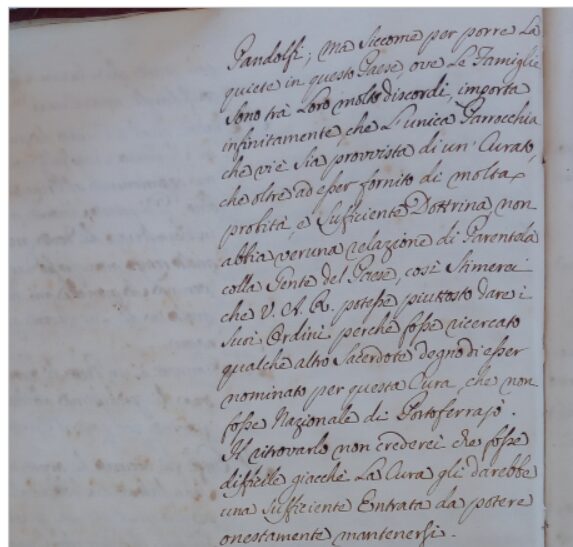 Pandolfi; Ma siccome per porre La
quiete in questo Paese, ove Le Famiglie
sono trà Loro molto discordi, importa
infinitamente, che L'unica Parrocchia
che v'è sia provvista di un' Curato,
che oltre ad esser fornito di molta
probità, e sufficiente Dottrina non
abbia veruna relazione di Parentela
colla Gente del Paese, così stimerei
che V. A. R. potesse piuttosto dare i
suoi Ordini perchè fosse ricercato
qualche altro Sacerdote degno di esser
nominato per questa Cura, che non
fosse Nazionale di Portoferrajo.
Il ritrovarlo non crederei che fosse
difficile giacchè La Cura gli darebbe
una sufficiente Entrata da potere
onestamente mantenersi.